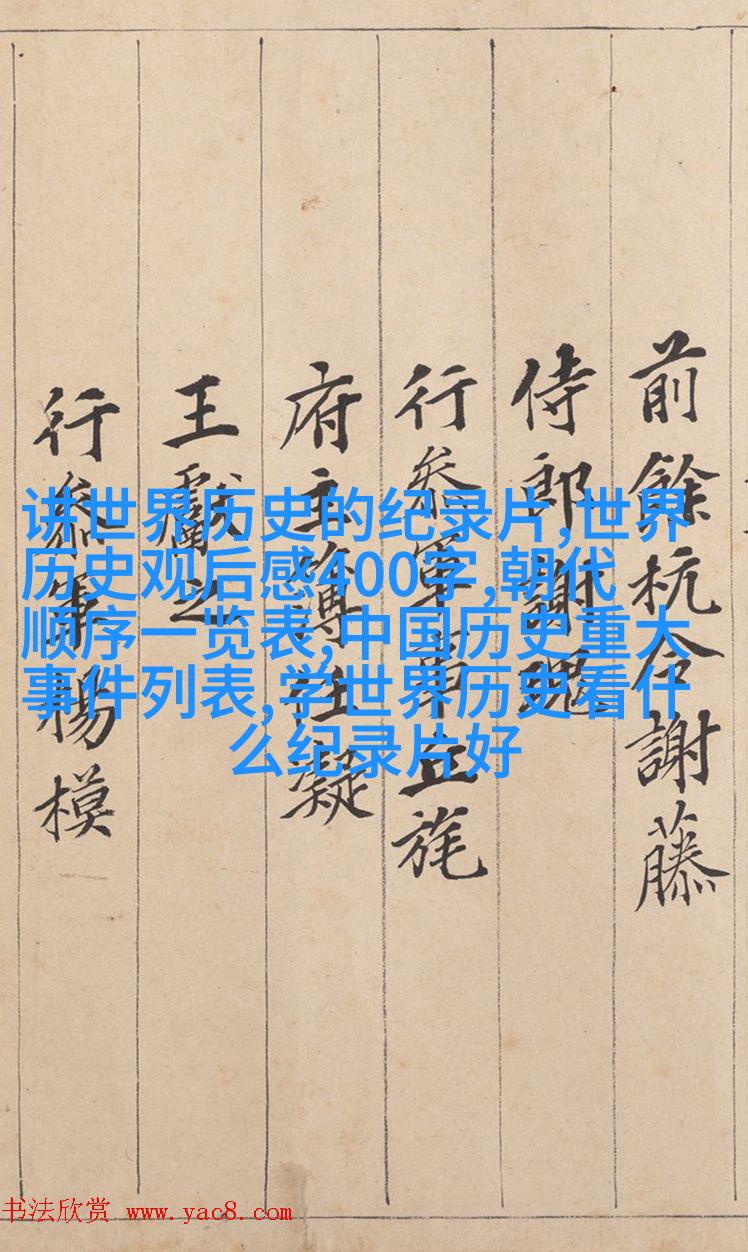 前餘杭令謝藤
侍郎謝瑰
行叅軍事丘旄
府主簿任凝
王獻之
行叅軍楊模
讲世界历史的纪录片,世界
历史观后感400字,朝代
顺序一览表,中国历史重大
事件列表,学世界历史看什
么纪录片好
书法欣赏 www.yac8.com